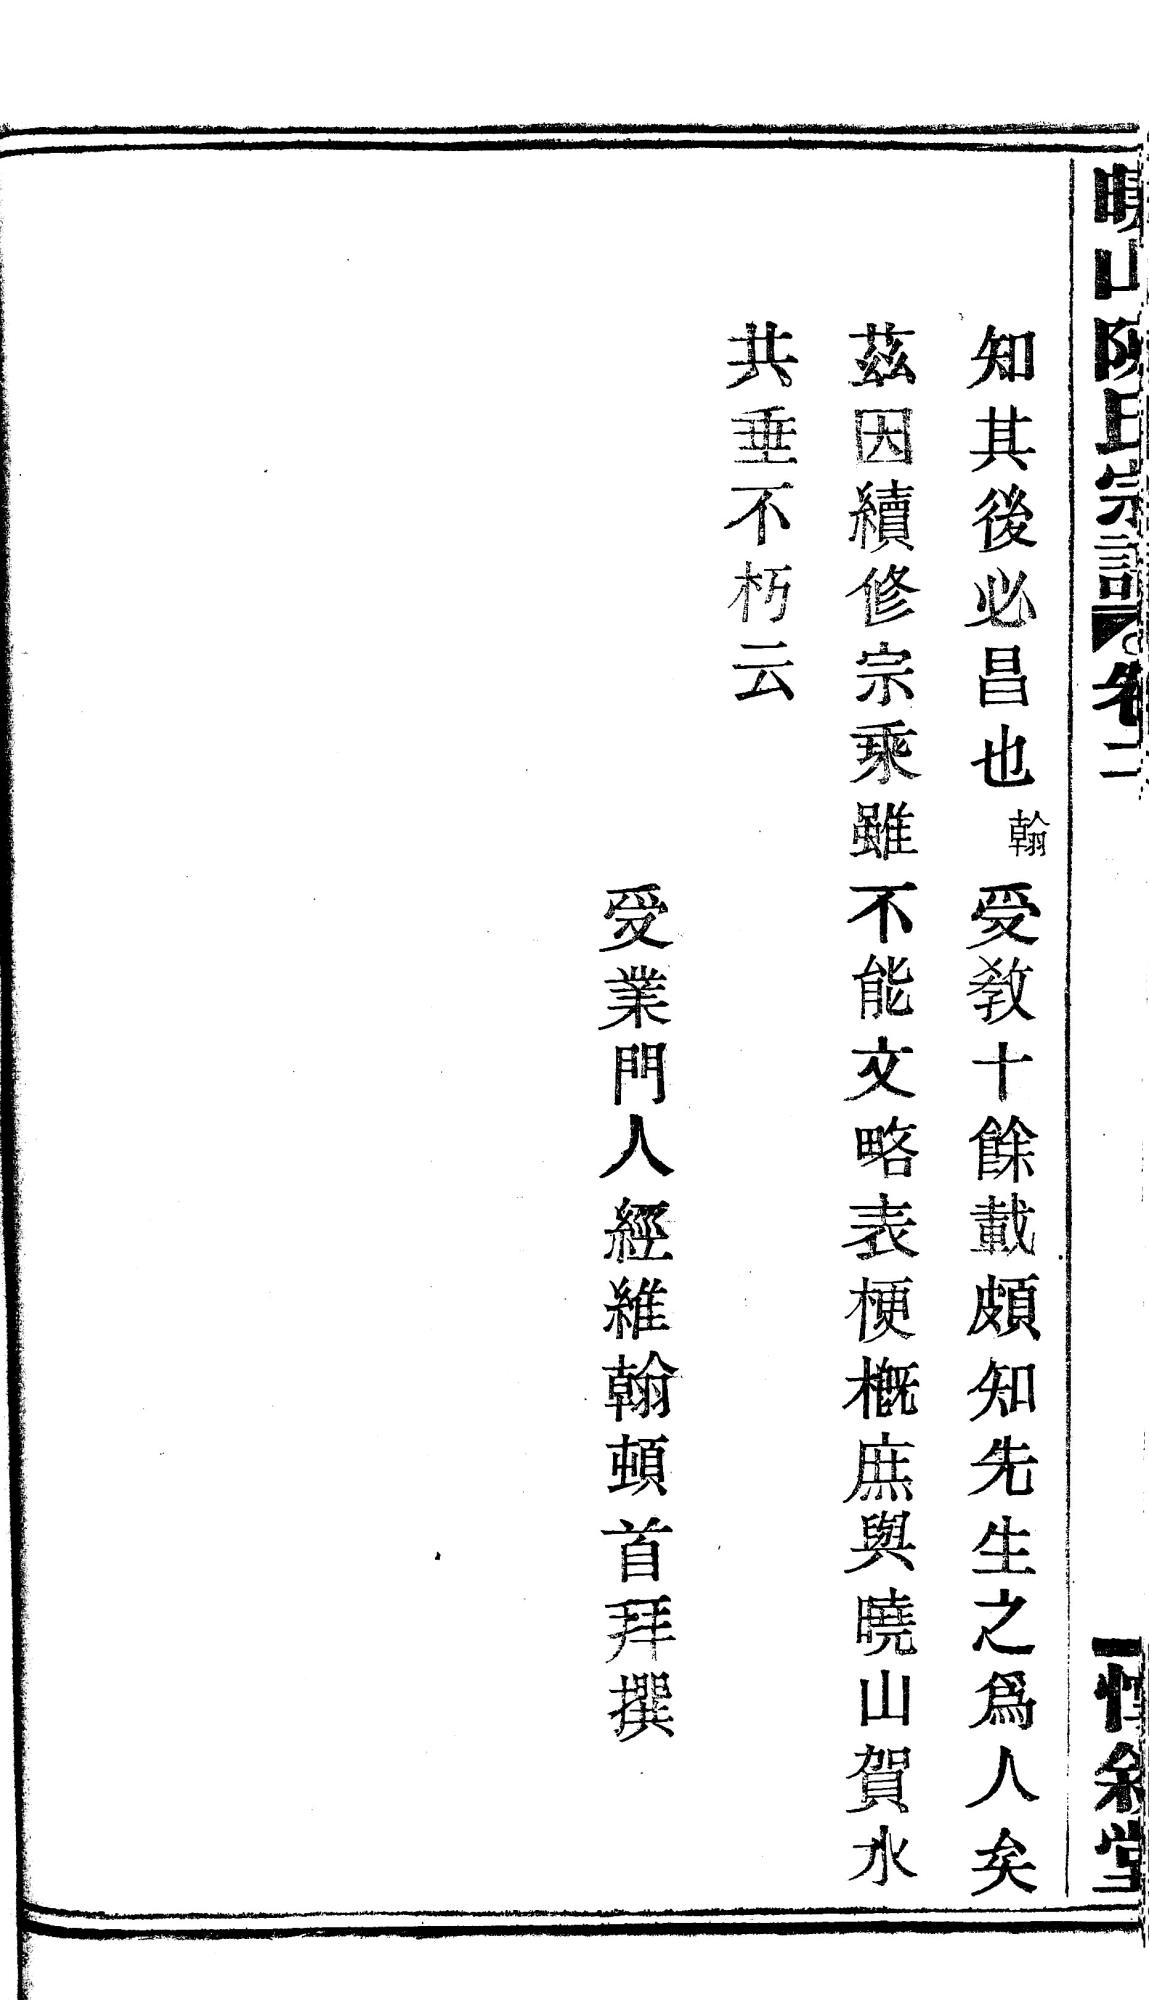 曉山陳氏宗譜 卷二 惇叙堂
知其後必昌也翰受敎十餘載頗知先生之爲人矣
茲因續修宗乘雖不能文略表梗槪庶與曉山賀水
共垂不朽云
受業門人經維翰頓首拜撰